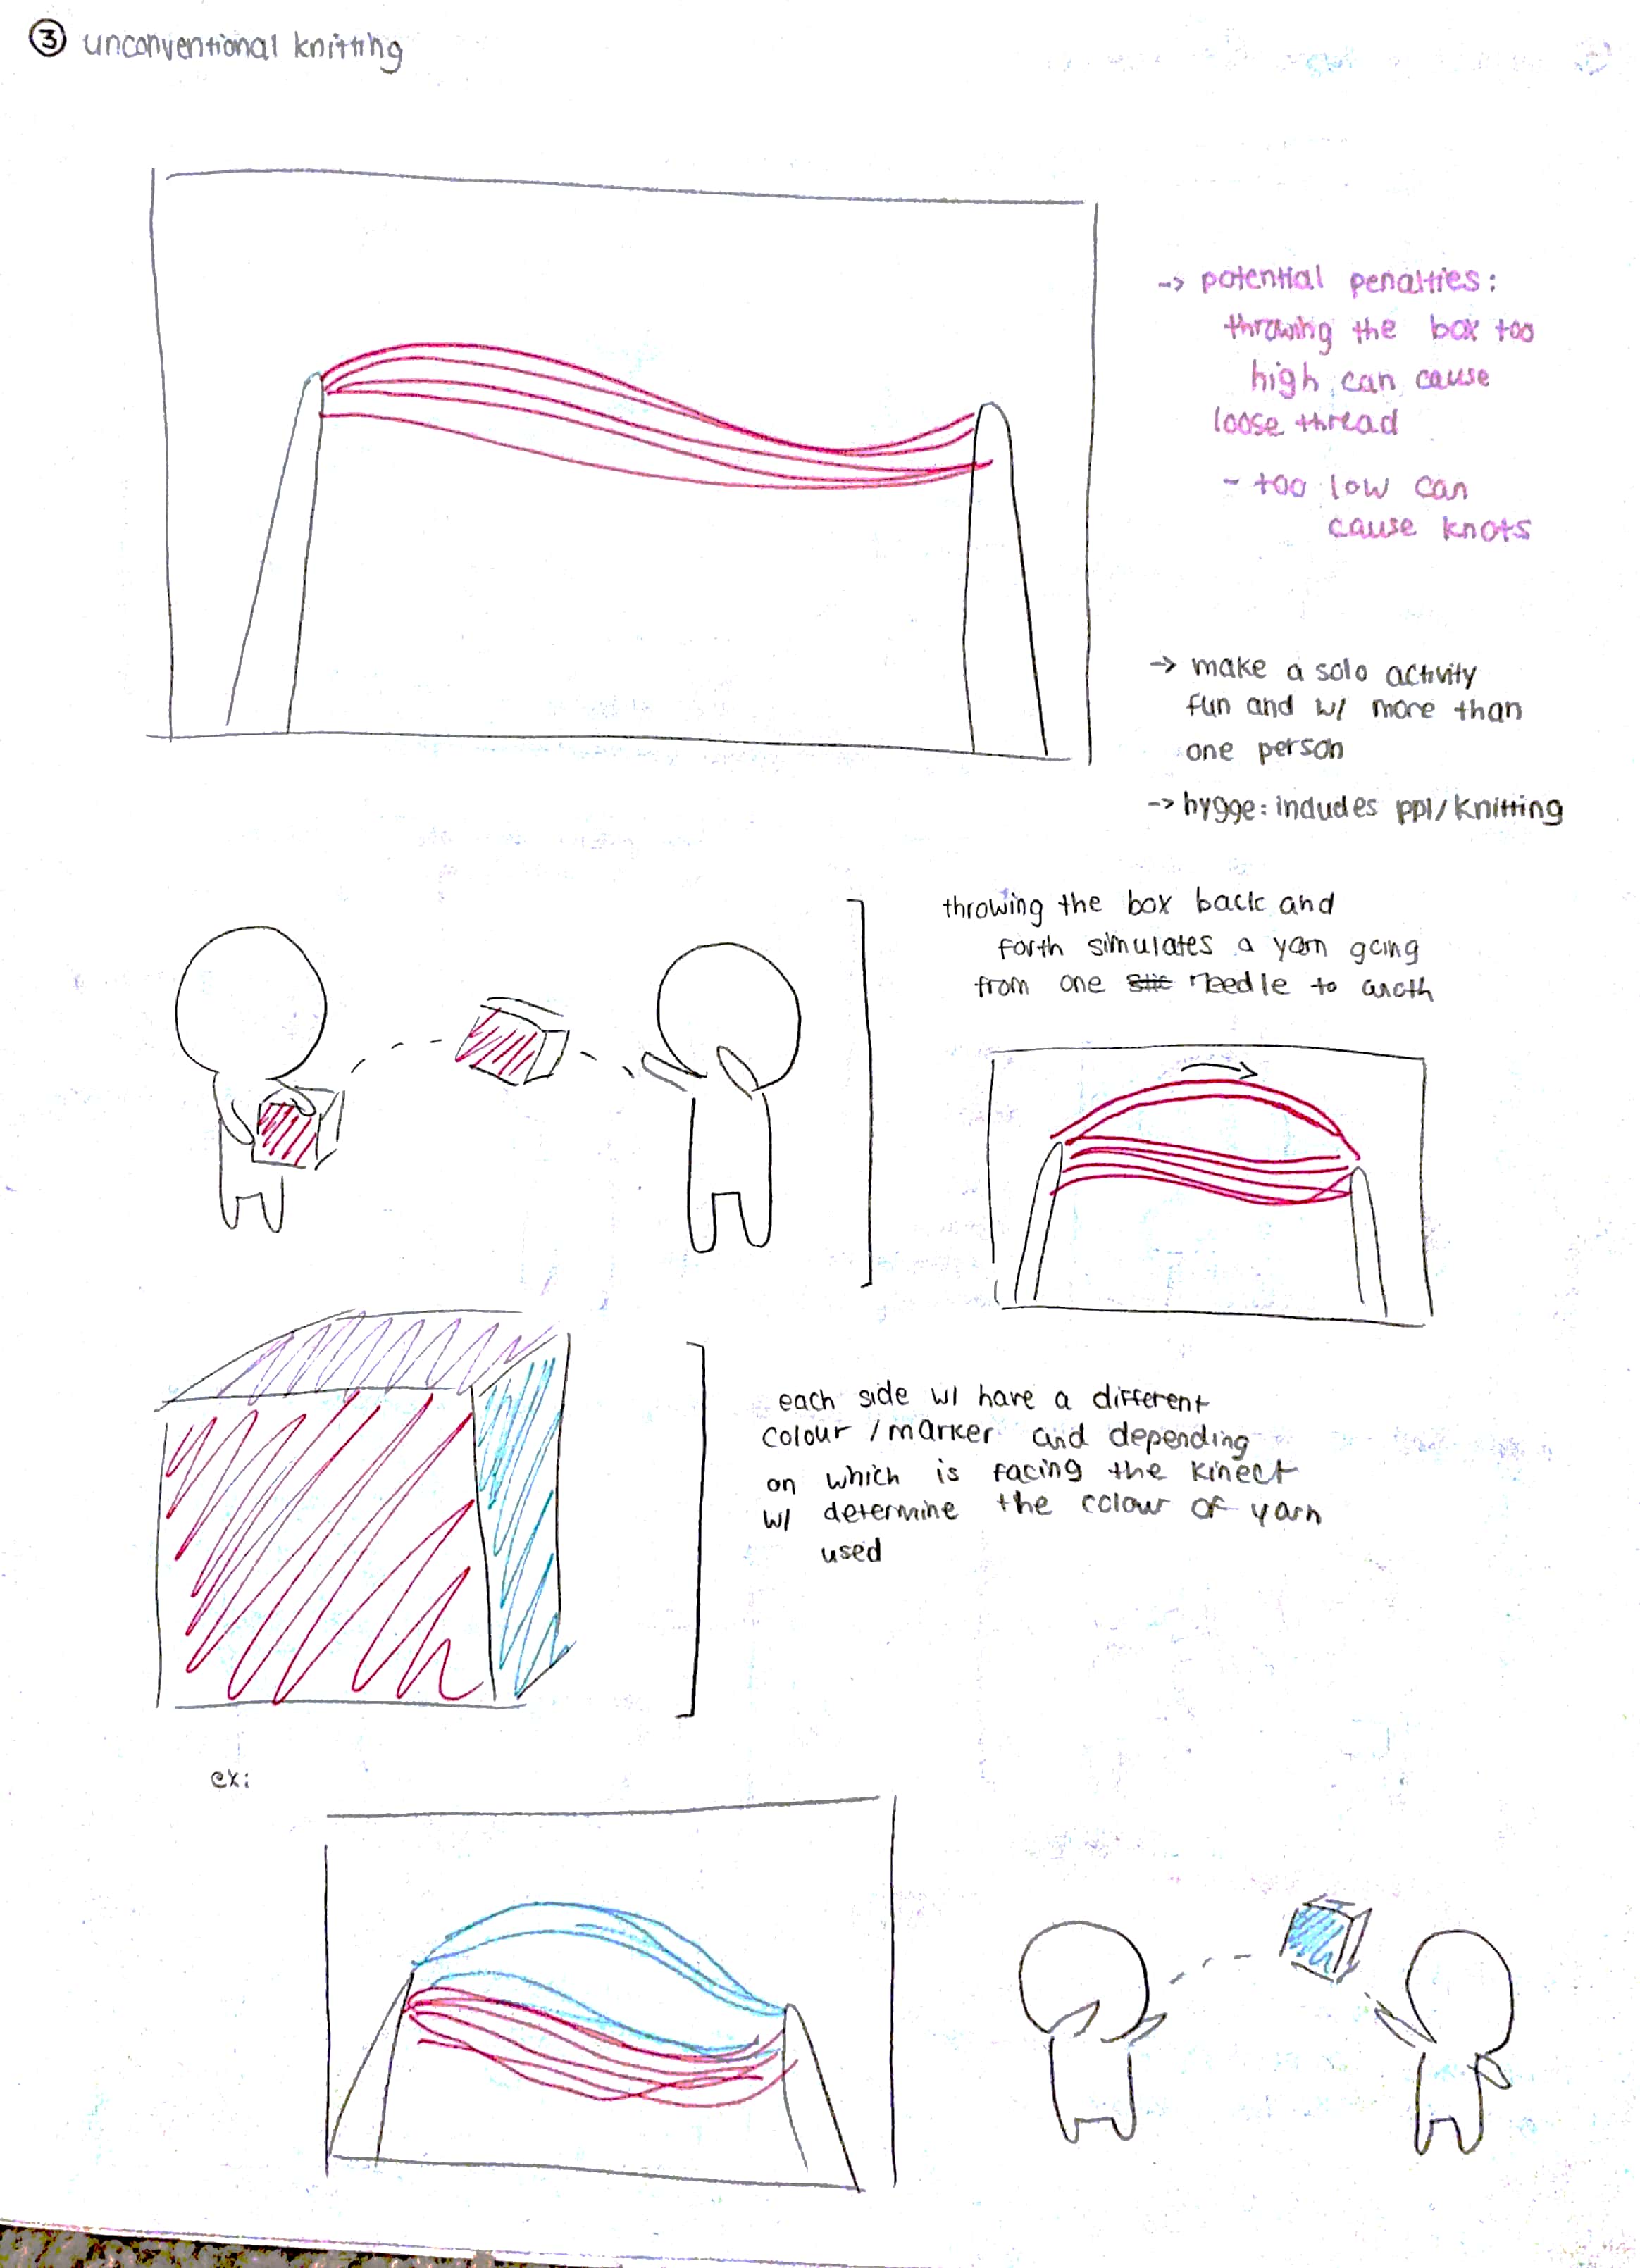 ③ unconventional knitting
-> potential penalties:
throwing the box too
high can cause
loose thread
- too low can
cause knots
-> make a solo activity
fun and w/ more than
one person
-> hygge: includes ppl/knitting
throwing the box back and
forth simulates a yarn going
from one needle to anoth
each side w/ have a different
colour / marker and depending
on which is facing the kinect
w/ determine the colour of yarn
used
ex: